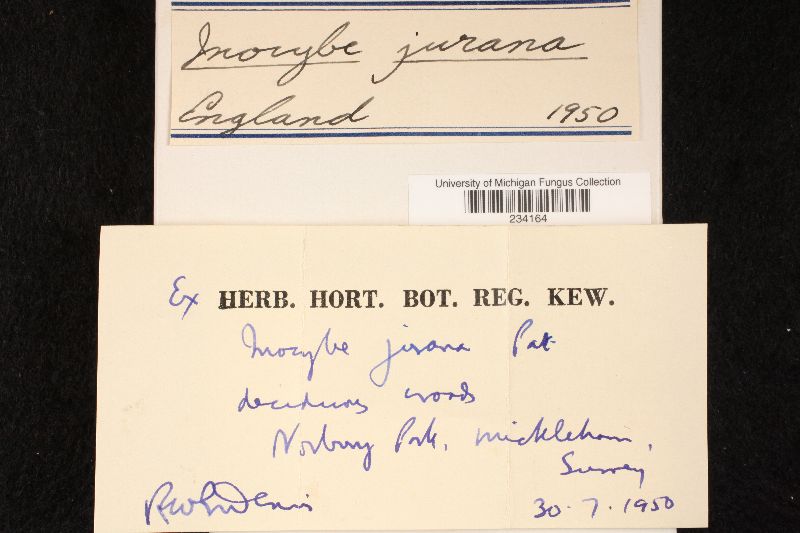 Inocybe jurana
England 1950
University of Michigan Fungus Collection
234164
Ex HERB. HORT. BOT. REG. KEW.
Inocybe jurana Pat
deciduous woods
Norbury Park, Mickleham,
Surrey
RWG Dennis 30.7.1950